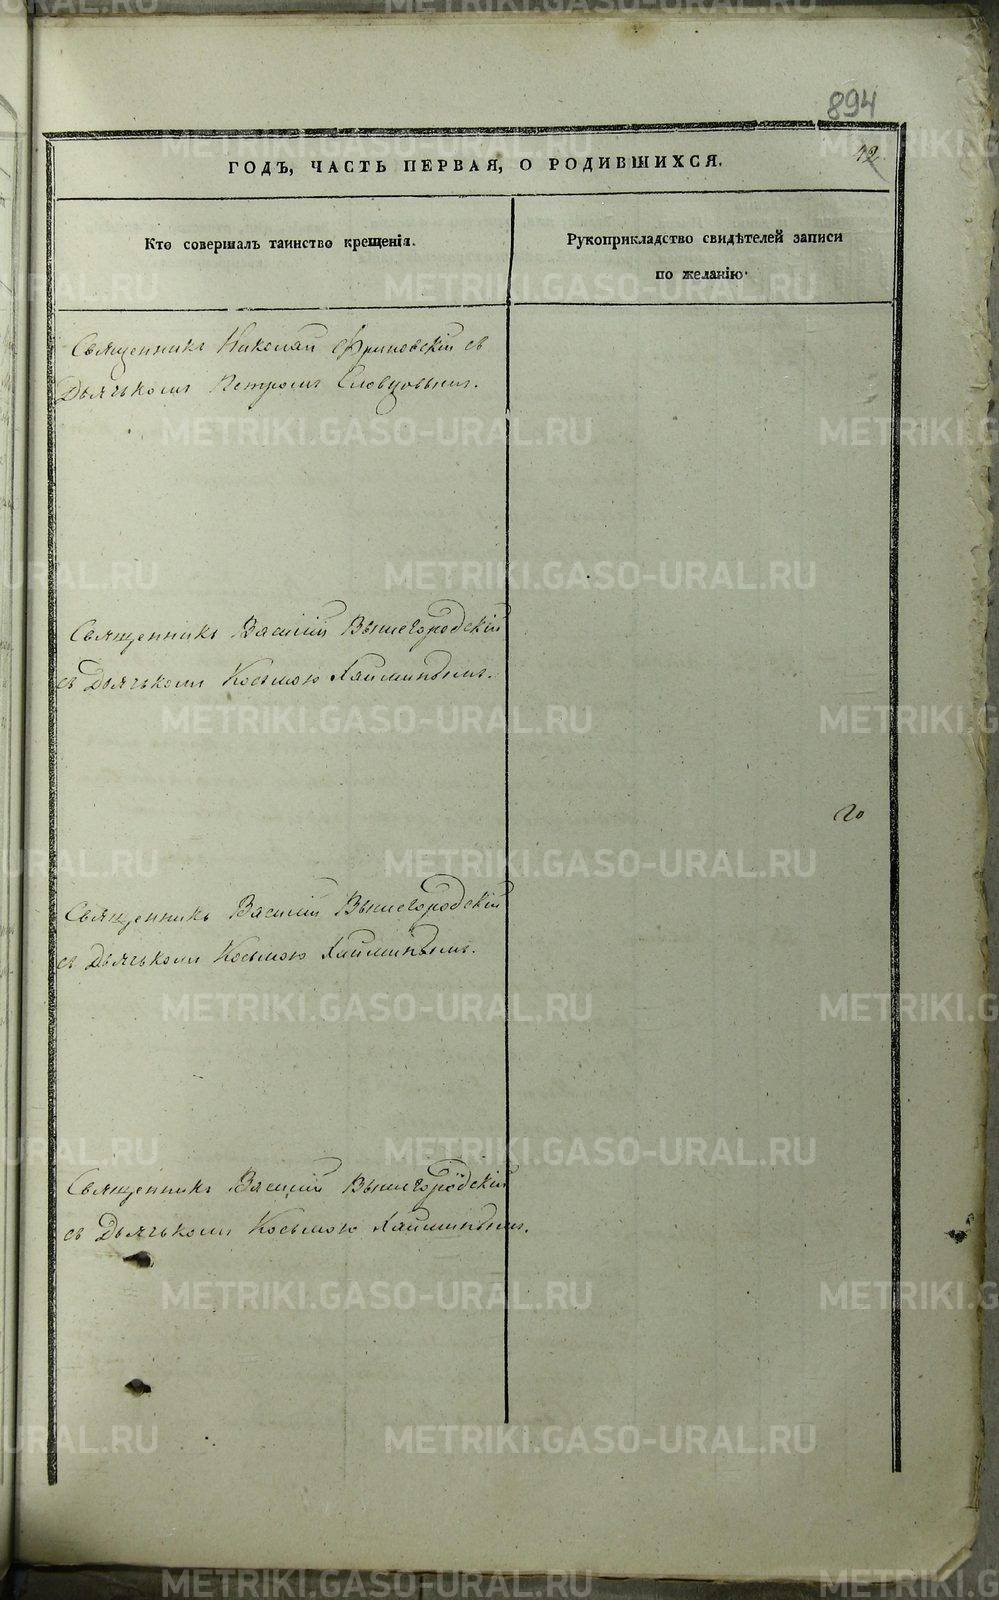 894
42
ГОДЪ, ЧАСТЬ ПЕРВАЯ, О РОДИВШИХСЯ.
Кто совершалъ таинство крещенія.
Рукоприкладство свидѣтелей записи
по желанію.
Священникъ Николай съ
Дьячькомъ Петромъ Словцовымъ.
Священникъ Василій Вышегородскій
съ Дьячькомъ Косьмою
Священникъ Василій Вышегородскій
съ Дьячькомъ Косьмою
Священникъ Василій Вышегородскій
съ Дьячькомъ Косьмою
METRIKI.GASO-URAL.RU